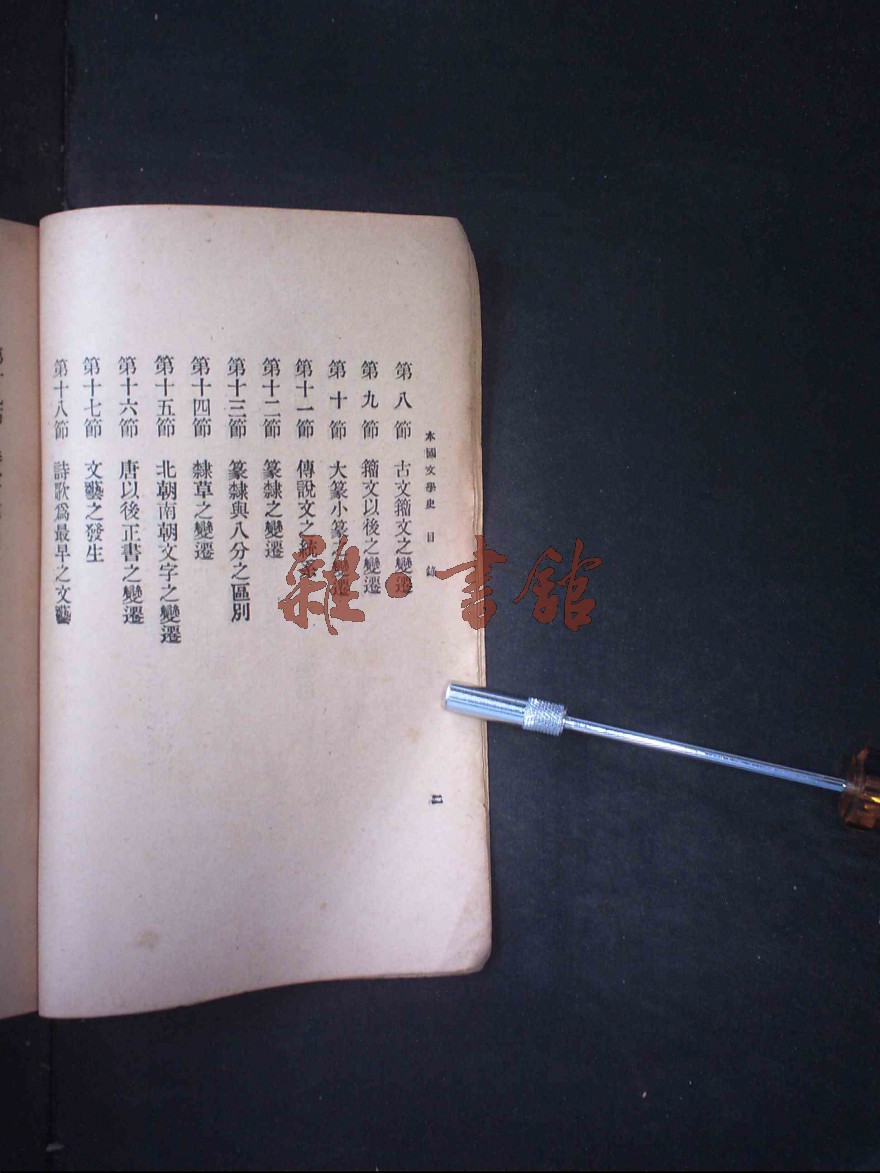 本國文學史 目錄 二
第八節 古文籀文之變遷
第九節 籀文以後之變遷
第十節 大篆小篆之變遷
第十一節 傳說文之統系
第十二節 篆隸之變遷
第十三節 篆隸與八分之區別
第十四節 隸草之變遷
第十五節 北朝南朝文字之變遷
第十六節 唐以後正書之變遷
第十七節 文藝之發生
第十八節 詩歌爲最早之文藝
雜·書館